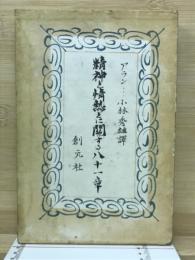 アラン・・・小林秀雄譯
精神と情熱とに關する八十一章
創元社